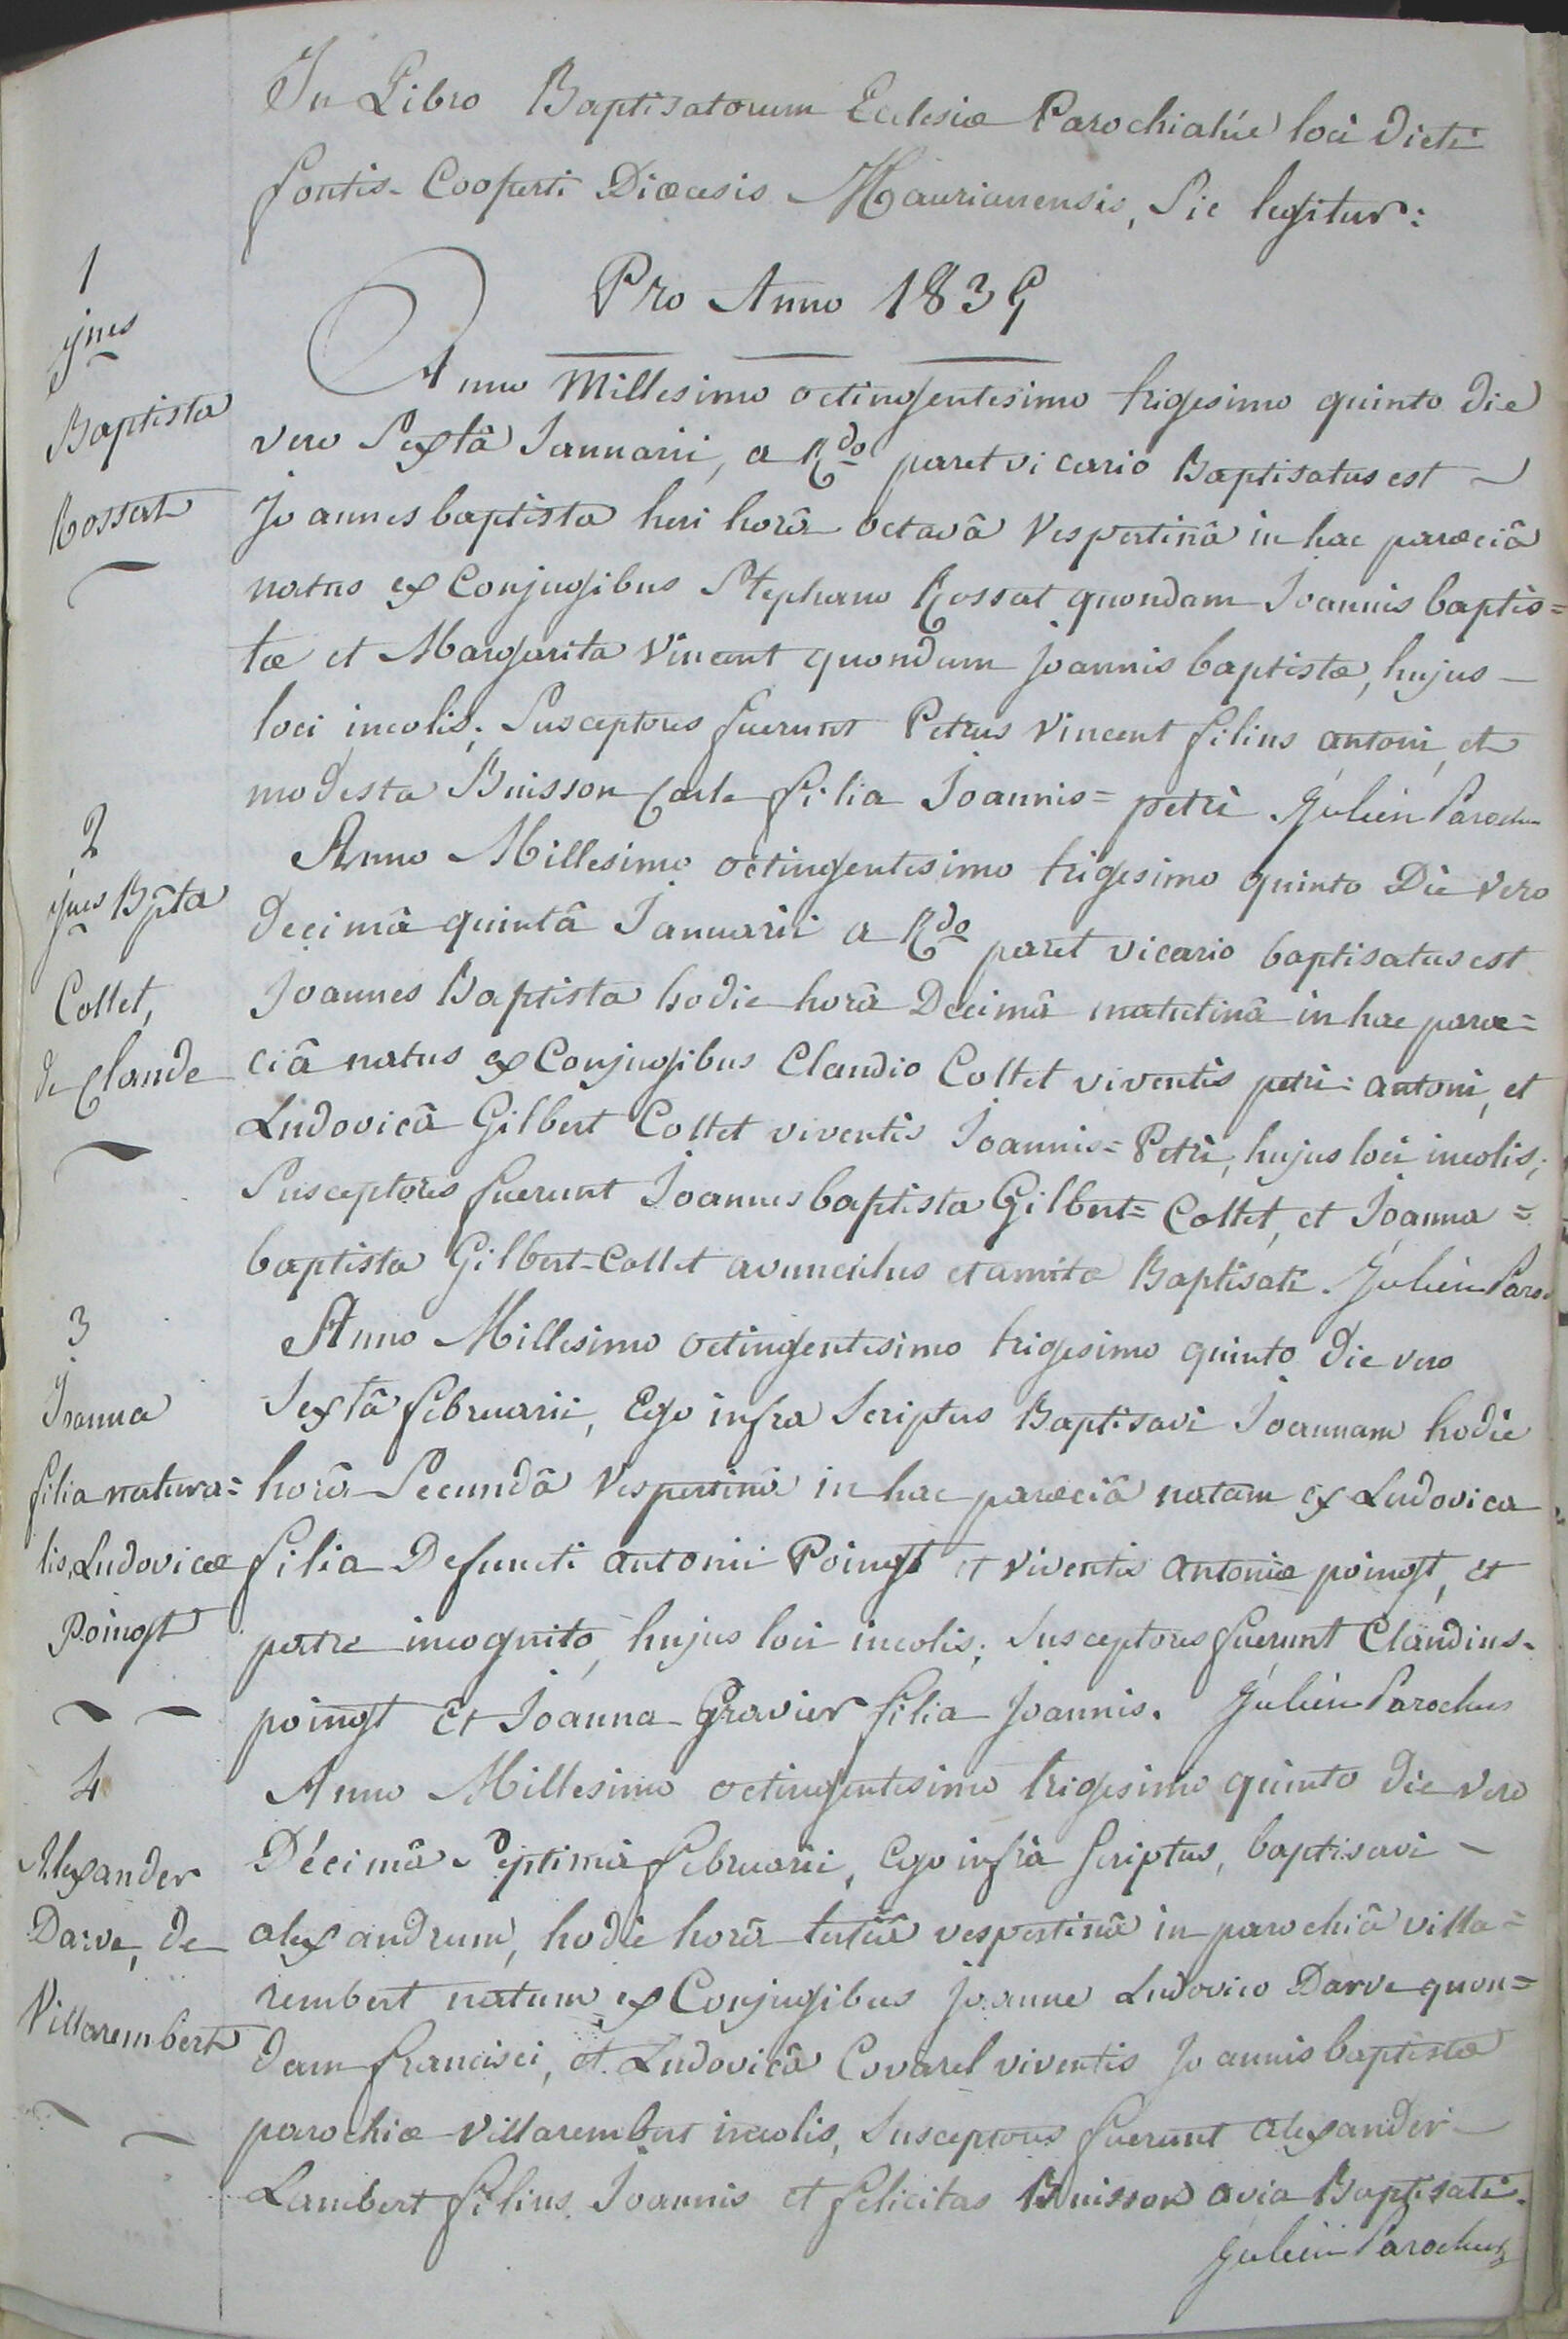 In Libro Baptisatorum Ecclesiæ Parochialis loci dicti
fontis-Cooperti Diœcesis Maurianensis, Sic legitur:
Pro Anno 1835
1
jnes
Baptista
Rossat
Anno Millesimo octingentesimo trigesimo quinto die
vero Sextâ Januarii, a Rdo paret vicario Baptisatus est
Joannes baptista heri horâ octavâ Vespertinâ in hac parœciâ
natus ex Conjugibus Stephano Rossat quondam Joannis baptis=
tæ et Margarita Vincent quondam joannis baptistæ, hujus
loci incolis; Susceptores fuerunt Petrus Vincent filius antoni, et
modesta Buisson Carle filia Joannis=petri. Julien Parochus
2
jnes Bpta
Collet,
de Claude
Anno Millesimo octingentesimo trigesimo quinto Die vero
decimâ quintâ Januarii a Rdo paret vicario baptisatus est
Joannes Baptista hodie horâ Decimâ matutinâ in hac parœ=
ciâ natus ex Conjugibus Claudio Collet viventis petri-antoni, et
Ludovicâ Gilbert Collet viventis Joannis=Petri, hujus loci incolis;
Susceptores fuerunt Joannes baptista Gilbert=Collet, et Joanna=
baptista Gilbert-Collet avunculus et amita Baptisati. Julien Paro.
3
Joanna
filia natura=
lis Ludovicæ
Poingt
Anno Millesimo octingentesimo trigesimo quinto die vero
Sextâ februarii, Ego infra Scriptus Baptisavi Joannam hodie
horâ Secundâ Vespertinâ in hac parœciâ natam ex Ludovica
filia Defuncti antonii Poingt et viventis antoniæ poingt, et
patre incognito, hujus loci incolis; Susceptores fuerunt Claudius
poingt et Joanna Gravier filia joannis. Julien Parochus
4
Alexander
Darve, de
Villarembert
Anno Millesimo octingentesimo trigesimo quinto die vero
Décimâ Septimâ februarii, Ego infrà Scriptus, baptisavi
alexandrum, hodie horâ tertiâ vespertinâ in parochiâ villa=
rembert natum ex Conjugibus joanne Ludovico Darve quon=
dam francisci, et Ludovicâ Covarel viventis joannis baptistæ
parochiæ villarembert incolis, Susceptores fuerunt alexander
Lambert filius Joannis et felicitas Buisson avia Baptisati.
Julien Parochus